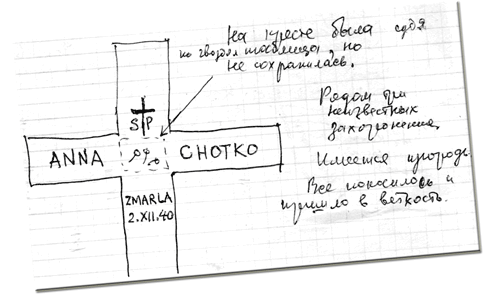 На кресте была судя
по гвоздям табличка, но
не сохранилась.
S P
ANNA
CHOTKO
ZMARLA
2.XII.40
Рядом три
неизвестных
захоронения.
Имеется ограда.
Все покосилось и
пришло в ветхость.